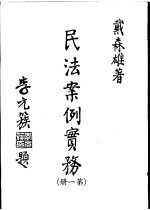 戴森雄著
民法案例實務
(第一冊)
李元簇題